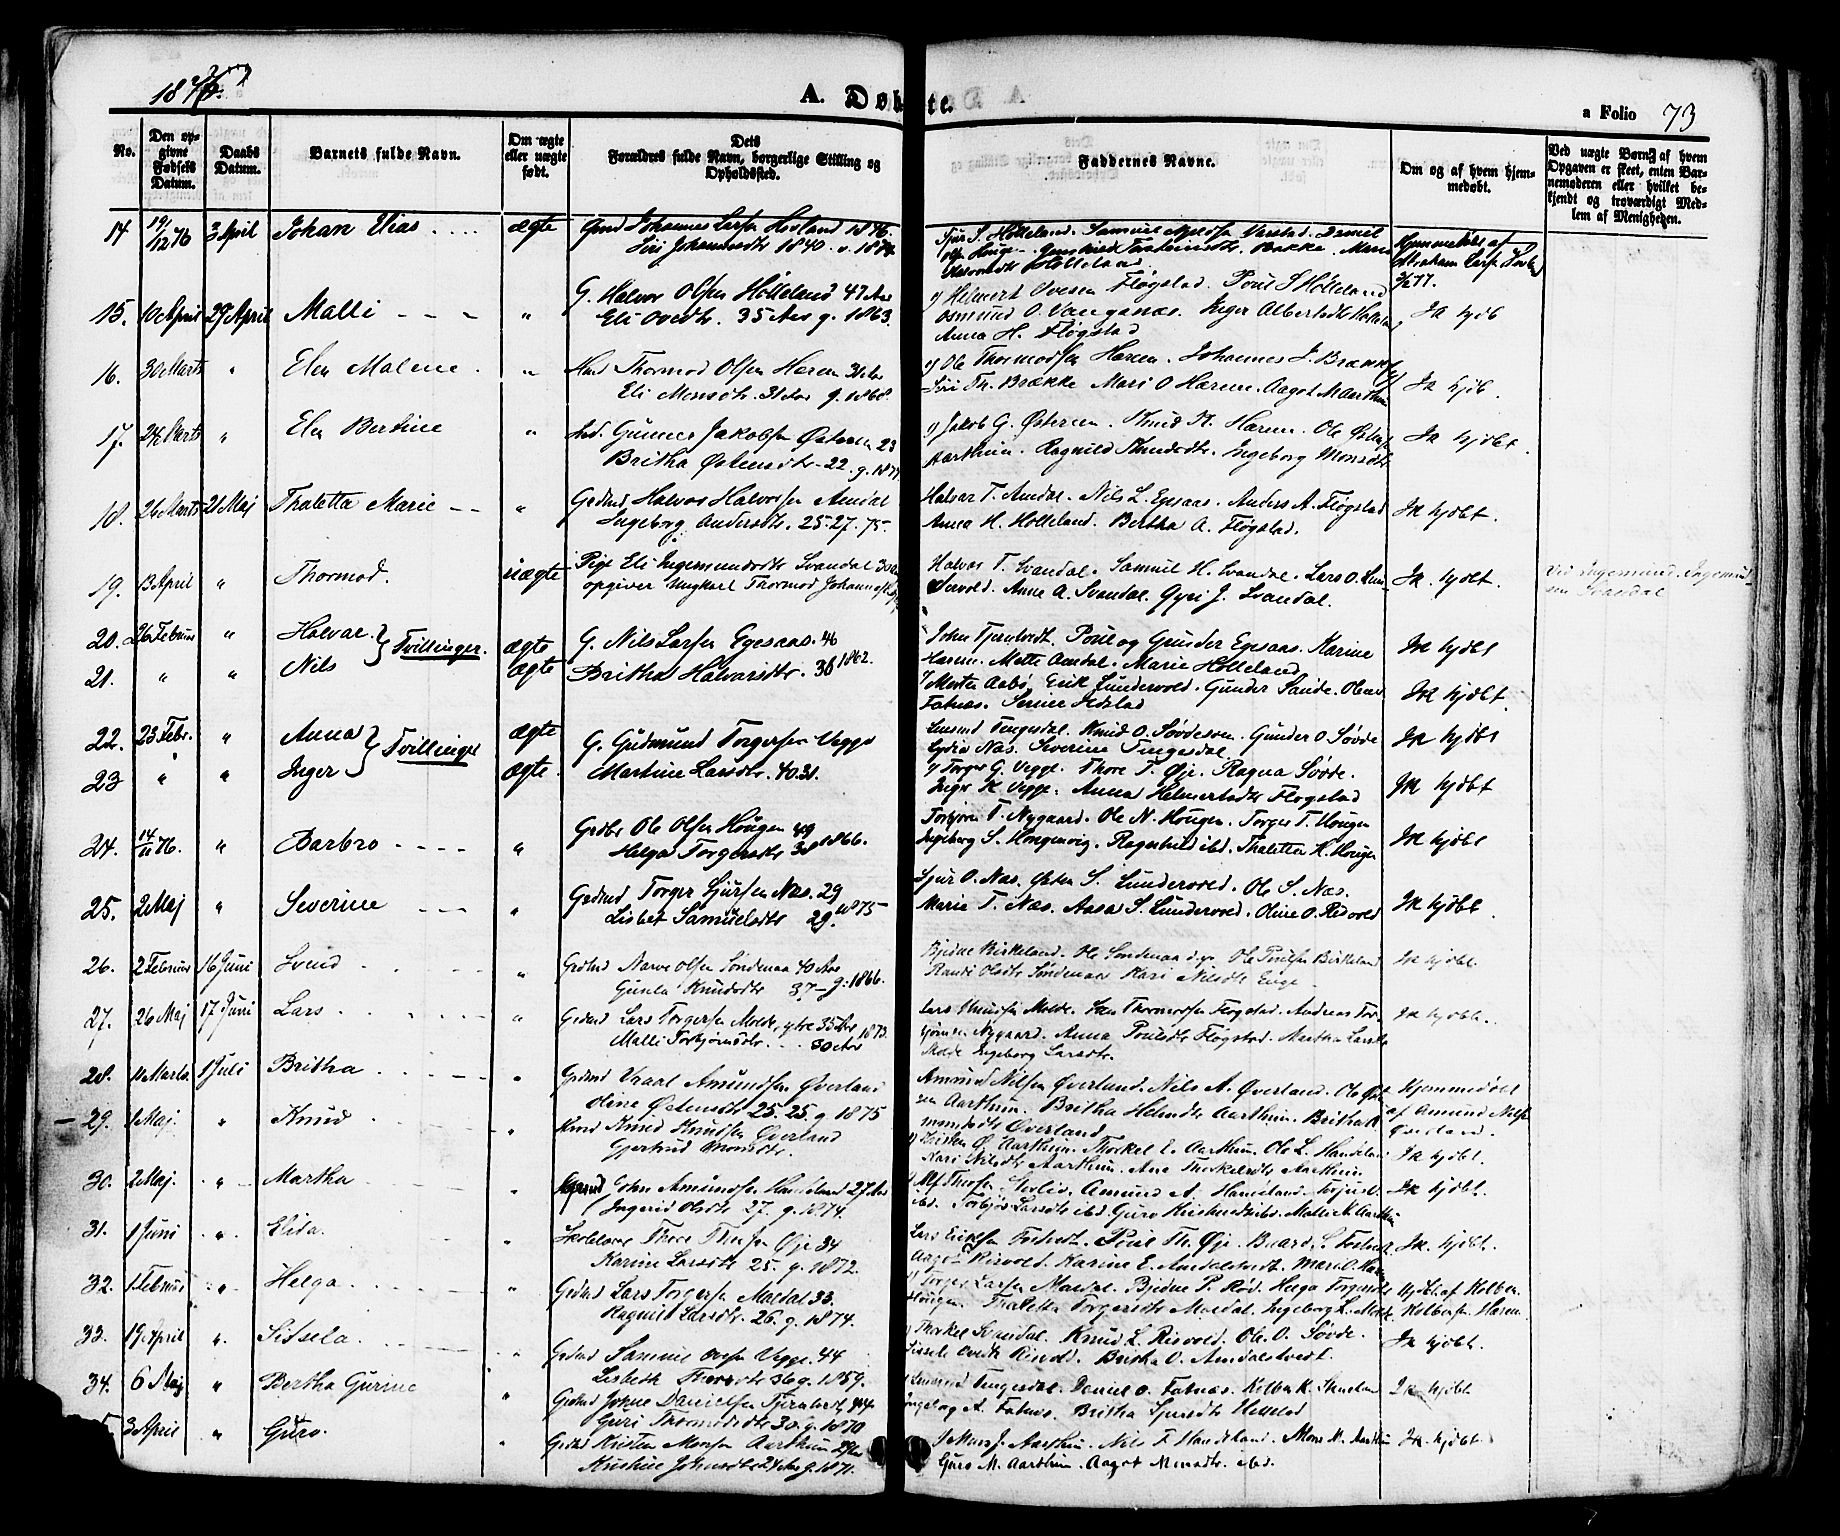 1877
A. Døbte.
a Folio 73
No.
Den opgivne Fødsels Datum.
Daabs Datum.
Barnets fulde Navn.
Om ægte eller uægte født.
Dets Forældres fulde Navn, borgerlige Stilling og Opholdssted.
Faddernes Navne.
Om og af hvem hjemmedøbt.
Ved uægte Børn, af hvem Opgaven er skeet, enten Barnemoderen eller hvilket bekjendt og troværdigt Medlem af Menigheden.
14 19/12 76 3 April Johan Elias .... ægte Gmd Johannes Larsen Hovland 1876
Siri Johannesdtr 1840 v. 187
Sjur S. Hølleland. Samuel
Hjemmedøbt af
Abraham Larsen
3/1 77.
15. 10 April 29 April Malli - - - " G. Halvor Olsen Hølleland 47 Aar
Eli Ovedtr. 35 Aar g. 1863.
Helmert Ovesen Fløgstad. Poul S Hølleland
Osmund O. Vanganæs. Inger Albertsdtr
Anna H. Fløgstad
Ik hjdb
16. 30 Marts " Elen Malene. " Thormod Olsen Harem 31 Aar
Eli Monsdtr. 31 Aar g. 1868.
Ole Thormodsen Harem. Johannes J. Brække
Siri Th. Brække Mari O Harem. Aagot M Aarthun
Ik hjdb.
17. 24 Marts " Elen Bertine " Gunner Jakobsen Østrem 23
Britha Østensdtr. 22. g. 187
Jakob G. Østrem. Knud N. Harem. Ole
Aarthun. Ragnild Knudsdtr. Ingeborg Monsdtr
Ik hjdbt.
18. 26 Marts 21 Maj Thaletta Marie - - " Gdmd Halvor Halvorsen Amdal
Ingeborg Andersdtr. 25.27.75.
Halvar T. Amdal. Nils L. Egesaas. Anders A. Fløgstad
Anna H. Hølleland. Bertha A. Fløgstad.
Ik hjdbt.
19. 13 April " Thormod. uægte Pige Eli Ingemundsdtr Svandal 30
opgiver Ungkarl Thormod Johannes
Halvor T. Svandal. Samuel H. Svandal. Lars O. Lun
Anne A. Svandal. Gyri J. Svandal.
Ik. hjdbt.
Ved Ingemund Ingemund-
sen Svandal
20. 26 Februar " Halvar. } Tvillinger. ægte G. Nils Larsen Egesaas. 46
John Tjerntvedt. Poul og Gunder Egesaas. Karine
Harem. Mette Amdal. Marie Hølleland
Ik hjdbt
21. " " Nils ægte Britha Halvarsdtr. 36 1862.
Morten Aabø. Erik Lundevold. Gunder Sande.
Fatnæs.
Ik hjdbt.
22. 23 Febr. " Anna } Tvillinger ægte G. Gudmund Torgersen Vegge
Tengesdal. Knud O. Søvdesen. Gunder O. Søvde
Lydia Næs. Severine Tengesdal.
Ik hjdbt
23 " " Inger ægte. Martine Larsdtr. 40.31.
Torger G. Vegge. Thore T. Øje. Ragna Søvde.
Inger K Vegge. Anna Helmertsdtr Fløgstad
Ik hjdbt
24. 14/11 76. " Barbro - - - - " Grdbr Ole Olsen Hougen 49
Helga Torgersdtr 38 1866.
Torbjørn T. Nygaard. Ole N. Hougen. Torger T. Hougen
Ingeborg S. Hongenvig. Ragnhild ibd. Thaletta K. Hougen
Ik hjdbt
25. 2 Maj " Severine - - - " Gdmd Torger Sjursen Næs. 29
Lisbet Samuelsdtr 29. 1875
Sjur O. Næs. Østen S. Lundevold. Ole S. Næs.
Marie T. Næs. Aasa S. Lundevold. Oline O. Risvold
Ik hjdbt.
26. 2 Februar 16 Juni Svend . . . " Grdmd Narve Olsen Søndenaa 40 Aar
Gunla Knudsdtr 37 - g. 1866.
Birkeland. Ole Søndenaa d.y. Ole Poulsen Birkeland
Randi Olsdtr Søndenaa Kari Nilsdtr Enge -
Ik hjdbt.
27. 26 Maj 17 Juni Lars . . . " Gdmd Lars Torgersen Molde, ytre 35 Aar
Malli Torbjørnsdtr. . . 30 Aar 1873.
Lars Knudsen Molde. Thormodsen Fløgstad. Andreas Tor
bjørnsen Nygaard. Anna Poulsdtr Fløgstad. Martha Larsdtr
Molde Ingeborg Larsdtr.
Ik hjdbt.
28. 11 Marts. 1 Juli Britha . . . " Grdmd Vraal Amundsen Øverland
Oline Østensdtr 25.25 g 1875
Amund Nilsen Øverland. Nils A. Øverland. Ole Øst
sen Aarthun. Britha Helmdtr Aarthun. Britha
Øverland
Hjemmedøbt
af Amund Nilsen
Øverland.
29. 1 Maj. " Knud . . . " Knud Knudsen Øverland
Gjertrud Monsdtr.
Østen Ø. Aarthun. Thorkel E. Aarthun. Ole L. Handeland
Kari Nilsdtr Aarthun. Ane Thorkelsdtr Aarthun.
Ik hjdbt.
30. 2 Maj. " Martha . . . " John Amundsen Handeland 27 Aar
Ingerid Olsdtr 27. g. 1874.
Alf Thorsen. Amund A. Handeland.
ibd. Torbjør Larsdtr ibd. Guro ibd. Malli N. Aarthun
Ik hjdbt.
31. 1 Juni " Elida. " Thore Thorsen Øje 34
Karine Larsdtr 25. g. 1872.
Lars Eriksen. Poul Th. Øje. Baard S.
Aagot Risvold. Karine E. Amdalstvedt.
Ik. hjdbt.
32. 1 Februar " Helga . . . Gdmd Lars Torgersen Maldal 33.
Ragnild Larsdtr. 26. g. 1874.
Torger Larsen Maldal. Bjidne P. Rød. Helga Torgersdtr
Hougen. Thaletta Torgersdtr Maldal. Ingeborg L. Molde
Hjdbt. af Kolben
Kolbensen Harem.
33. 19 April ". Sissela . . . " Gdmd Samuel Ovesen Vegge 44
Lisbeth Thorsdtr 36 g. 1859.
Thorkel Svandal. Knud L. Risvold. Ole O. Søvde.
Sissele Risvold. Britha O. Amdalstvedt.
Ik hjdbt.
34. 6 Maj " Bertha Gurine " Gdmd Johne Danielsen Tjerntvedt 44
Guri Thormodsdtr 30. g. 1870
Tengesdal. Daniel O. Fatnæs. Kolben K.
Ingeborg A. Fatnæs. Britha Sjursdtr
Ik hjdbt
3 April " Guro. " Gdmd Kristen Monsen Aarthun 29 Aar
Kristine Johnsdtr 24 Aar g. 1871.
Mons J. Aarthun. Nils T. Handeland. Mons M. Aarthun
Guro M. Aarthun. Aagot Monsdtr. ibd.
Ik. hjdbt.